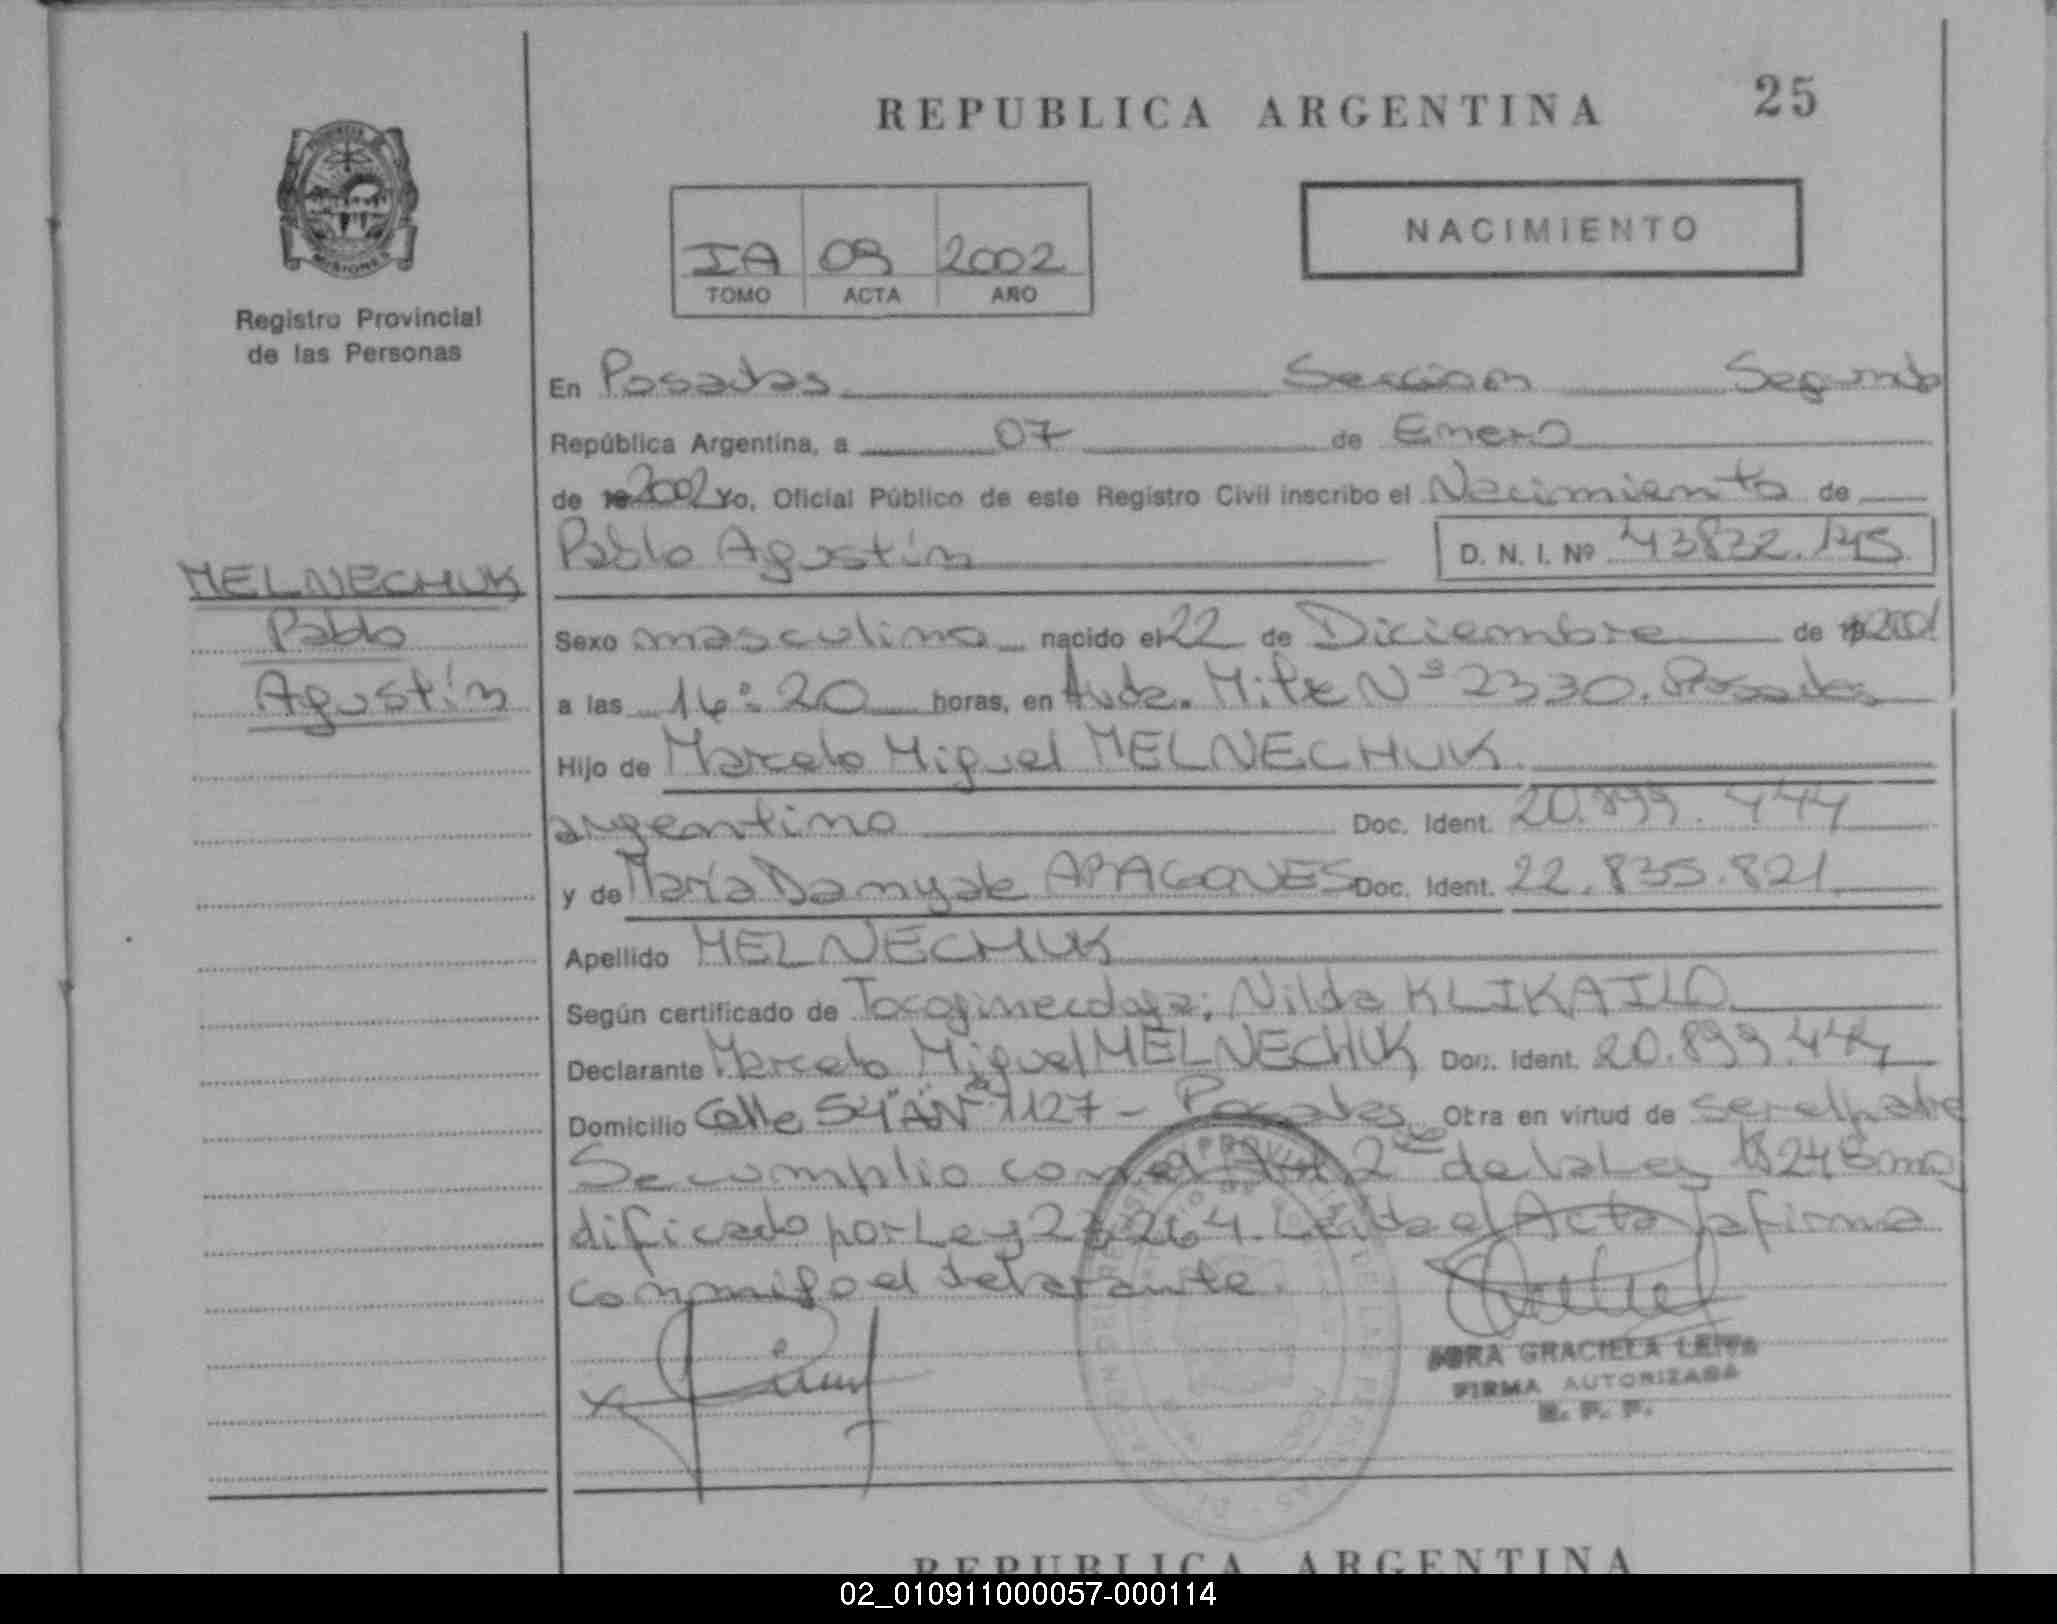 REPUBLICA ARGENTINA
25
MISIONES
Registro Provincial
de las Personas
IA 09 2002
TOMO ACTA AÑO
NACIMIENTO
En Posadas Seccion Segunda
República Argentina, a 07 de Enero
de 2002 Yo, Oficial Público de este Registro Civil inscribo el Nacimiento de
Pablo Agustín D. N. I. Nº
MELNECHUK
Pablo
Agustín
Sexo masculino nacido el 22 de Diciembre de 2001
a las 14:20 horas, en Avda. Nº 2330. Posadas
Hijo de Marcelo Miguel MELNECHUK.
argentino Doc. Ident. 20.899.444
y de María ARAGONES Doc. Ident. 22.835.821
Apellido MELNECHUK
Según certificado de Tocoginecologa: Nilda KLIKAILO
Declarante Marcelo Miguel MELNECHUK Doc. Ident. 20.899.444
Domicilio Calle 54 "A" Nº 1127 - Posadas Otra en virtud de ser el padre
Se cumplio con el Art 2º de la Ley 18248 mo
dificado por Ley 23264. Leida el Acta la firma
conmigo el declarante.
GRACIELA LEIVA
FIRMA AUTORIZADA
R. P. P.
REPUBLICA ARGENTINA
02_010911000057-000114